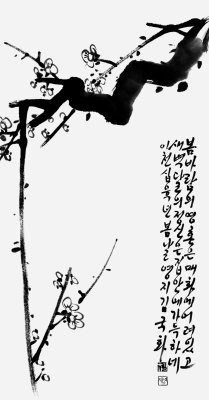 봄바람의 영혼은 매화에 어려있고
새벽달의 정신은 집안에 가득하네
이천십육년 봄날 영지 김국화